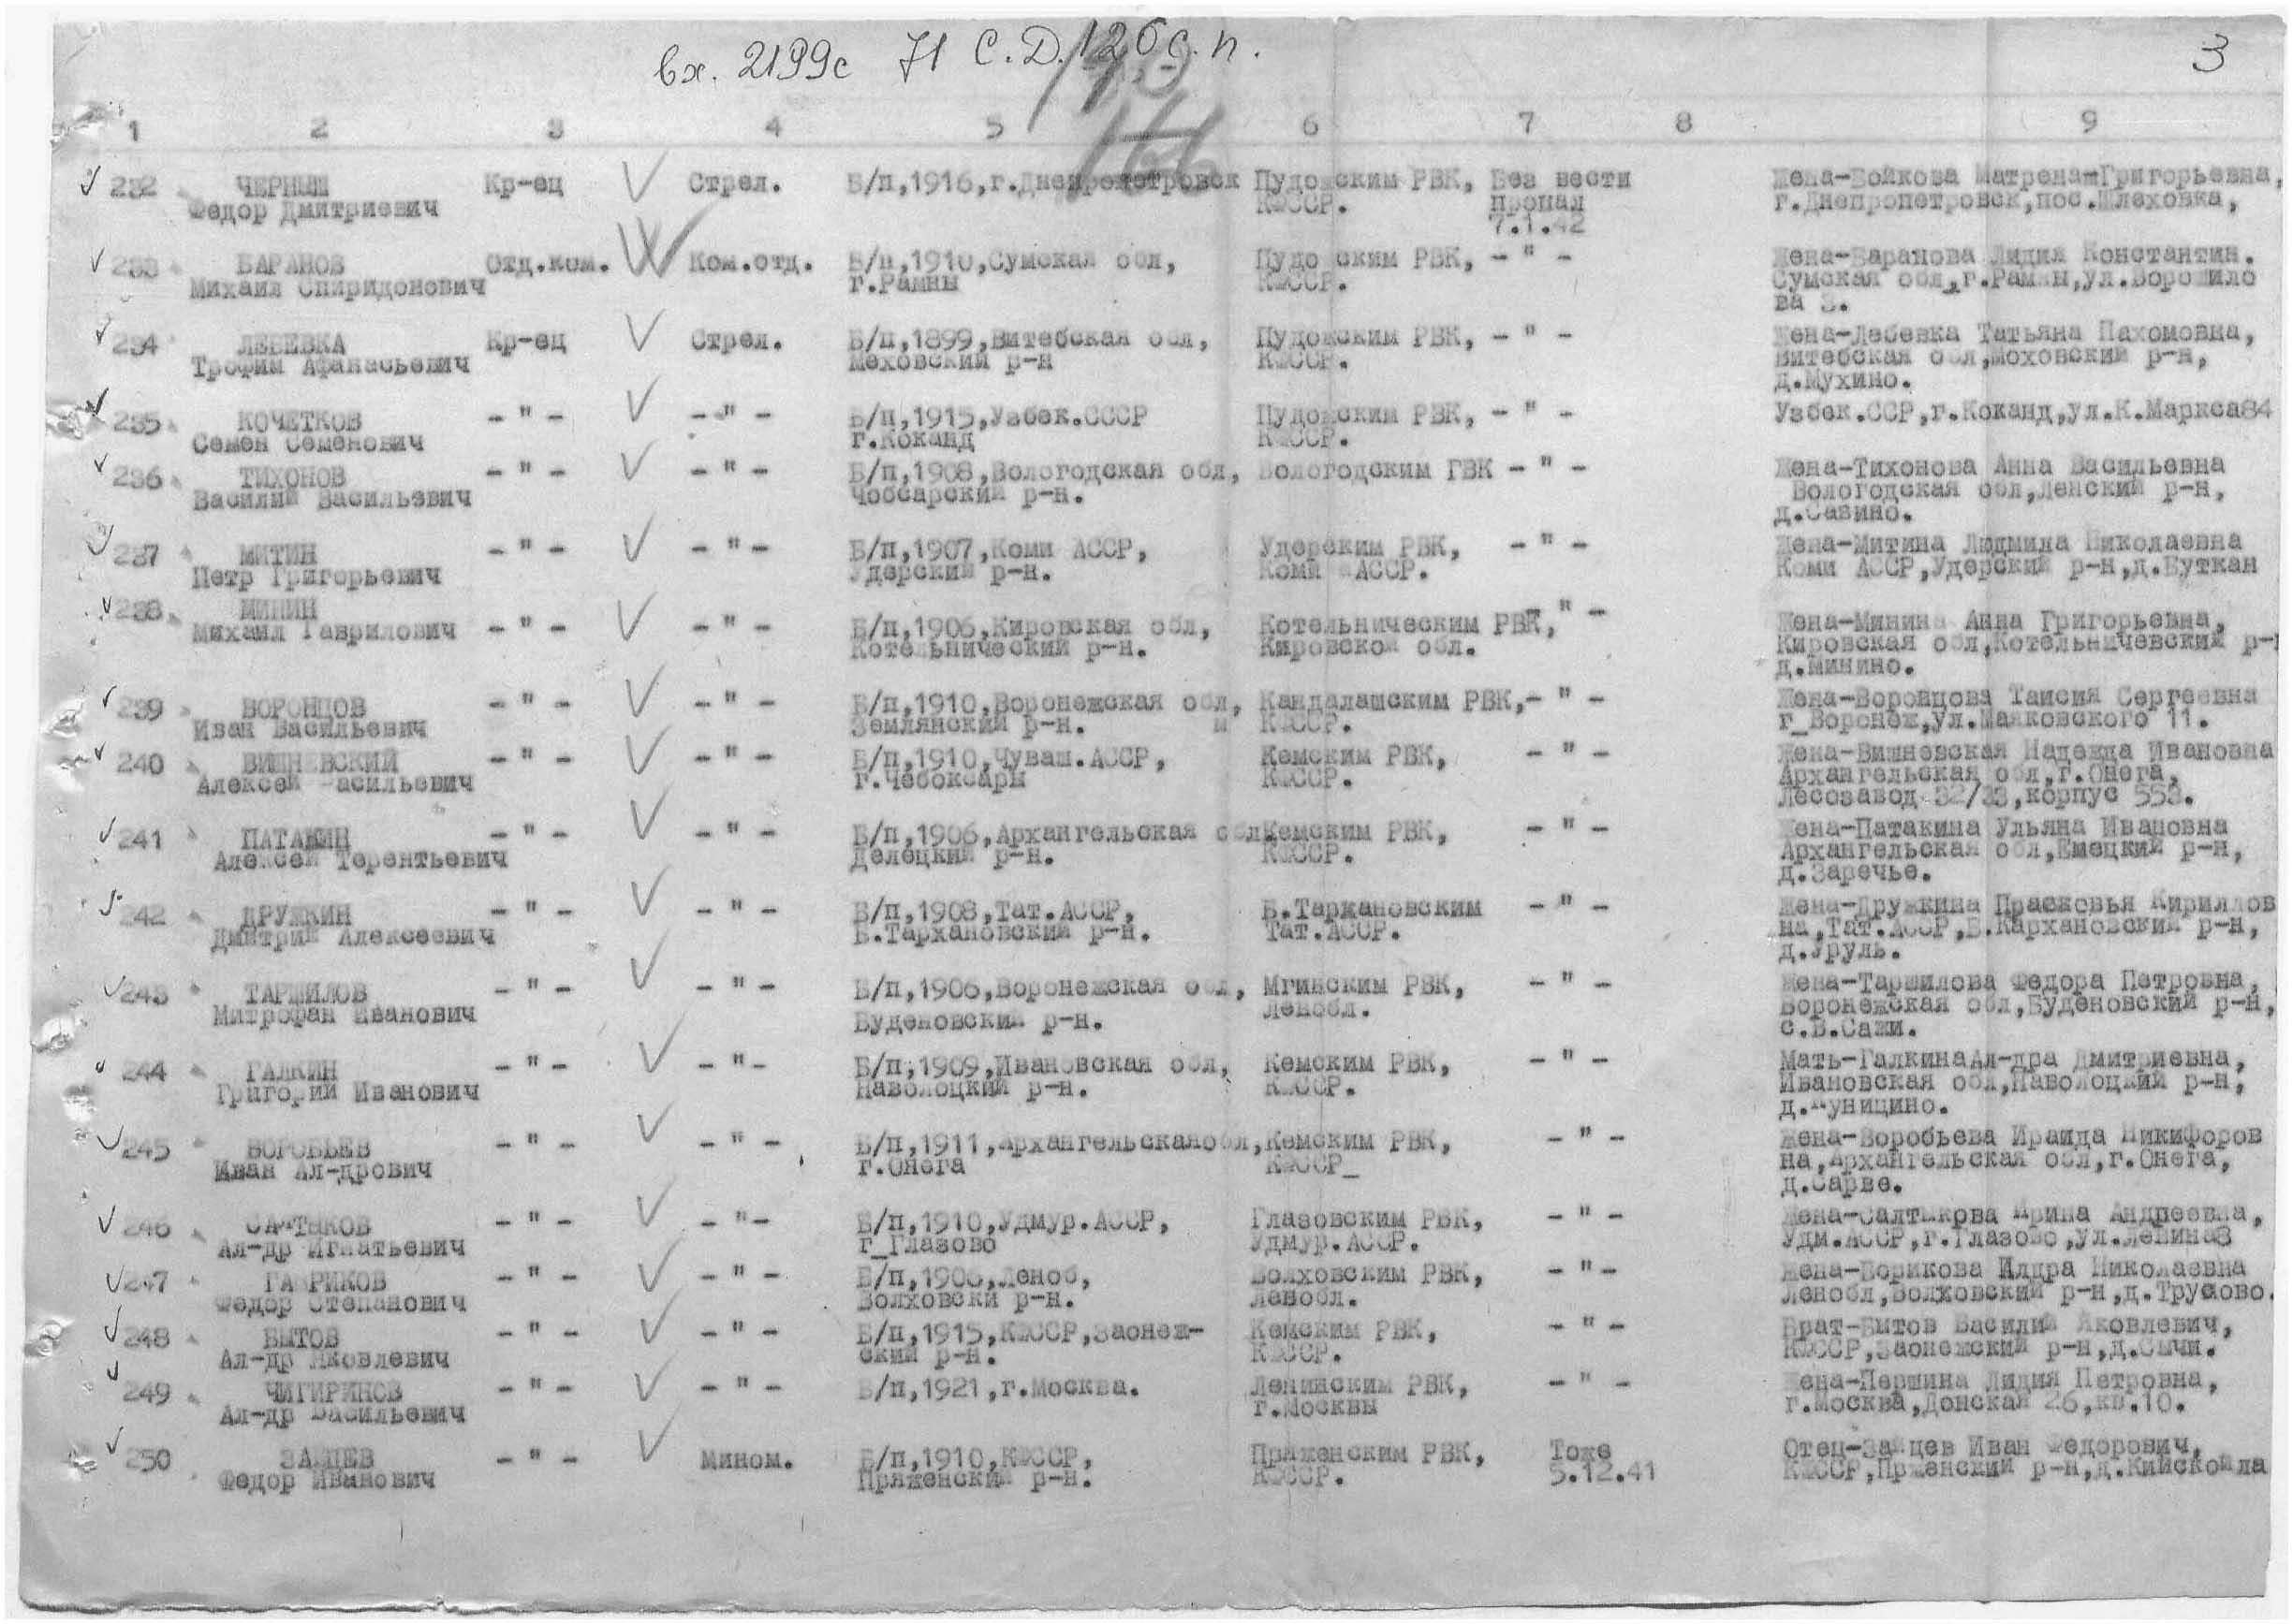 вх. 2199с 71 С.Д. 126 с.п.
3
166
1 2 3 4 5 6 7 8 9
232 ЧЕРНЫШ Кр-ец Стрел. Б/п,1916,г.Днепропетровск Пудожским РВК, Без вести Жена-Бойкова Матрена Григорьевна,
Федор Дмитриевич КФССР. пропал г.Днепропетровск,пос.Шлеховка,
7.1.42
233 БАРАНОВ Отд.ком. Ком.отд. Б/п,1910,Сумская обл, Пудожским РВК, - " - Жена-Баранова Лидия Константин.
Михаил Спиридонович г.Рамны КФССР. Сумская обл,г.Рамны,ул.Ворошило
ва 3.
234 ЛЕБЕВКА Кр-ец Стрел. Б/п,1899,Витебская обл, Пудожским РВК, - " - Жена-Лебевка Татьяна Пахомовна,
Трофим Афанасьевич Меховский р-н КФССР. Витебская обл,Моховский р-н,
д.Мухино.
235 КОЧЕТКОВ - " - - " - Б/п,1915,Узбек.СССР Пудожским РВК, - " - Узбек.ССР,г.Коканд,ул.К.Маркса84
Семен Семенович г.Коканд КФССР.
236 ТИХОНОВ - " - - " - Б/п,1908,Вологодская обл, Вологодским ГВК - " - Жена-Тихонова Анна Васильевна
Василий Васильевич Чобсарский р-н. Вологодская обл,Ленский р-н,
д.Савино.
237 МИТИН - " - - " - Б/п,1907,Коми АССР, Удерским РВК, - " - Жена-Митина Людмила Николаевна
Петр Григорьевич Удерский р-н. Коми АССР. Коми АССР,Удерский р-н,д.Буткан
238 МИНИН
Михаил Гаврилович - " - - " - Б/п,1906,Кировская обл, Котельническим РВК, " - Жена-Минина Анна Григорьевна,
Котельнический р-н. Кировской обл. Кировская обл,Котельничевский р-
д.Минино.
239 ВОРОНЦОВ - " - - " - Б/п,1910,Воронежская обл, Кандалашским РВК,- " - Жена-Воронцова Таисия Сергеевна
Иван Васильевич Землянский р-н. КФССР. г_Воронеж,ул.Маяковского 11.
240 ВИШНЕВСКИЙ - " - - " - Б/п,1910,Чуваш.АССР, Кемским РВК, - " - Жена-Вишневская Надежда Ивановна
Алексей Васильевич г.Чебоксары КФССР. Архангельская обл,г.Онега,
Лесозавод 32/33,корпус 553.
241 ПАТАКИН - " - - " - Б/п,1906,Архангельская обл Кемским РВК, - " - Жена-Патакина Ульяна Ивановна
Алексей Терентьевич Делецкий р-н. КФССР. Архангельская обл,Емецкий р-н,
д.Заречье.
242 ДРУЖКИН - " - - " - Б/п,1908,Тат.АССР, Б.Тархановским - " - Жена-Дружкина Прасковья Кириллов
Дмитрий Алексеевич Б.Тархановский р-н. Тат.АССР. на,Тат.АССР,Б.Кархановский р-н,
д.Уруль.
243 ТАРШИЛОВ - " - - " - Б/п,1906,Воронежская обл, Мгинским РВК, - " - Жена-Таршилова Федора Петровна,
Митрофан Иванович Буденовский р-н. Ленобл. Воронежская обл,Буденовский р-н,
с.В.Сажи.
244 ГАЛКИН - " - - " - Б/п,1909,Ивановская обл, Кемским РВК, - " - Мать-Галкина Ал-дра Дмитриевна,
Григорий Иванович Наволоцкий р-н. КФССР. Ивановская обл,Наволоцкий р-н,
245 ВОРОБЬЕВ - " - - " - Б/п,1911,Архангельская обл, Кемским РВК, - " - Жена-Воробьева Ираида Никифоров
Иван Ал-дрович г.Онега КФССР_ на,Архангельская обл,г.Онега,
д.Сарве.
246 САЛТЫКОВ - " - - " - Б/п,1910,Удмур.АССР, Глазовским РВК, - " - Жена-Салтыкова Ирина Андреевна,
Ал-др Игнатьевич г_Глазово Удмур.АССР. Удм.АССР,г.Глазово,ул.Ленина8
247 ГАВРИКОВ - " - - " - Б/п,1906,Леноб, Волховским РВК, - " - Жена-Борикова Николаевна
Федор Степанович Волховски р-н. Ленобл. Ленобл,Волховский р-н,д.Трусово.
248 БЫТОВ - " - - " - Б/п,1915,КФССР,Заонеж- Кемским РВК, - " - Брат-Бытов Василий Яковлевич,
Ал-др Яковлевич ский р-н. КФССР. КФССР,Заонежский р-н,д.Сычи.
249 ЧИГИРИНОВ - " - - " - Б/п,1921,г.Москва. Ленинским РВК, - " - Жена-Першина Лидия Петровна,
Ал-др Васильевич г.Москвы г.Москва,Донская 26,кв.10.
250 ЗАЙЦЕВ - " - Мином. Б/п,1910,КФССР, Пряженским РВК, Тоже Отец-Зайцев Иван Федорович,
Федор Иванович Пряженский р-н. КФССР. 5.12.41 КФССР,Прженский р-н,д.Кийскойла